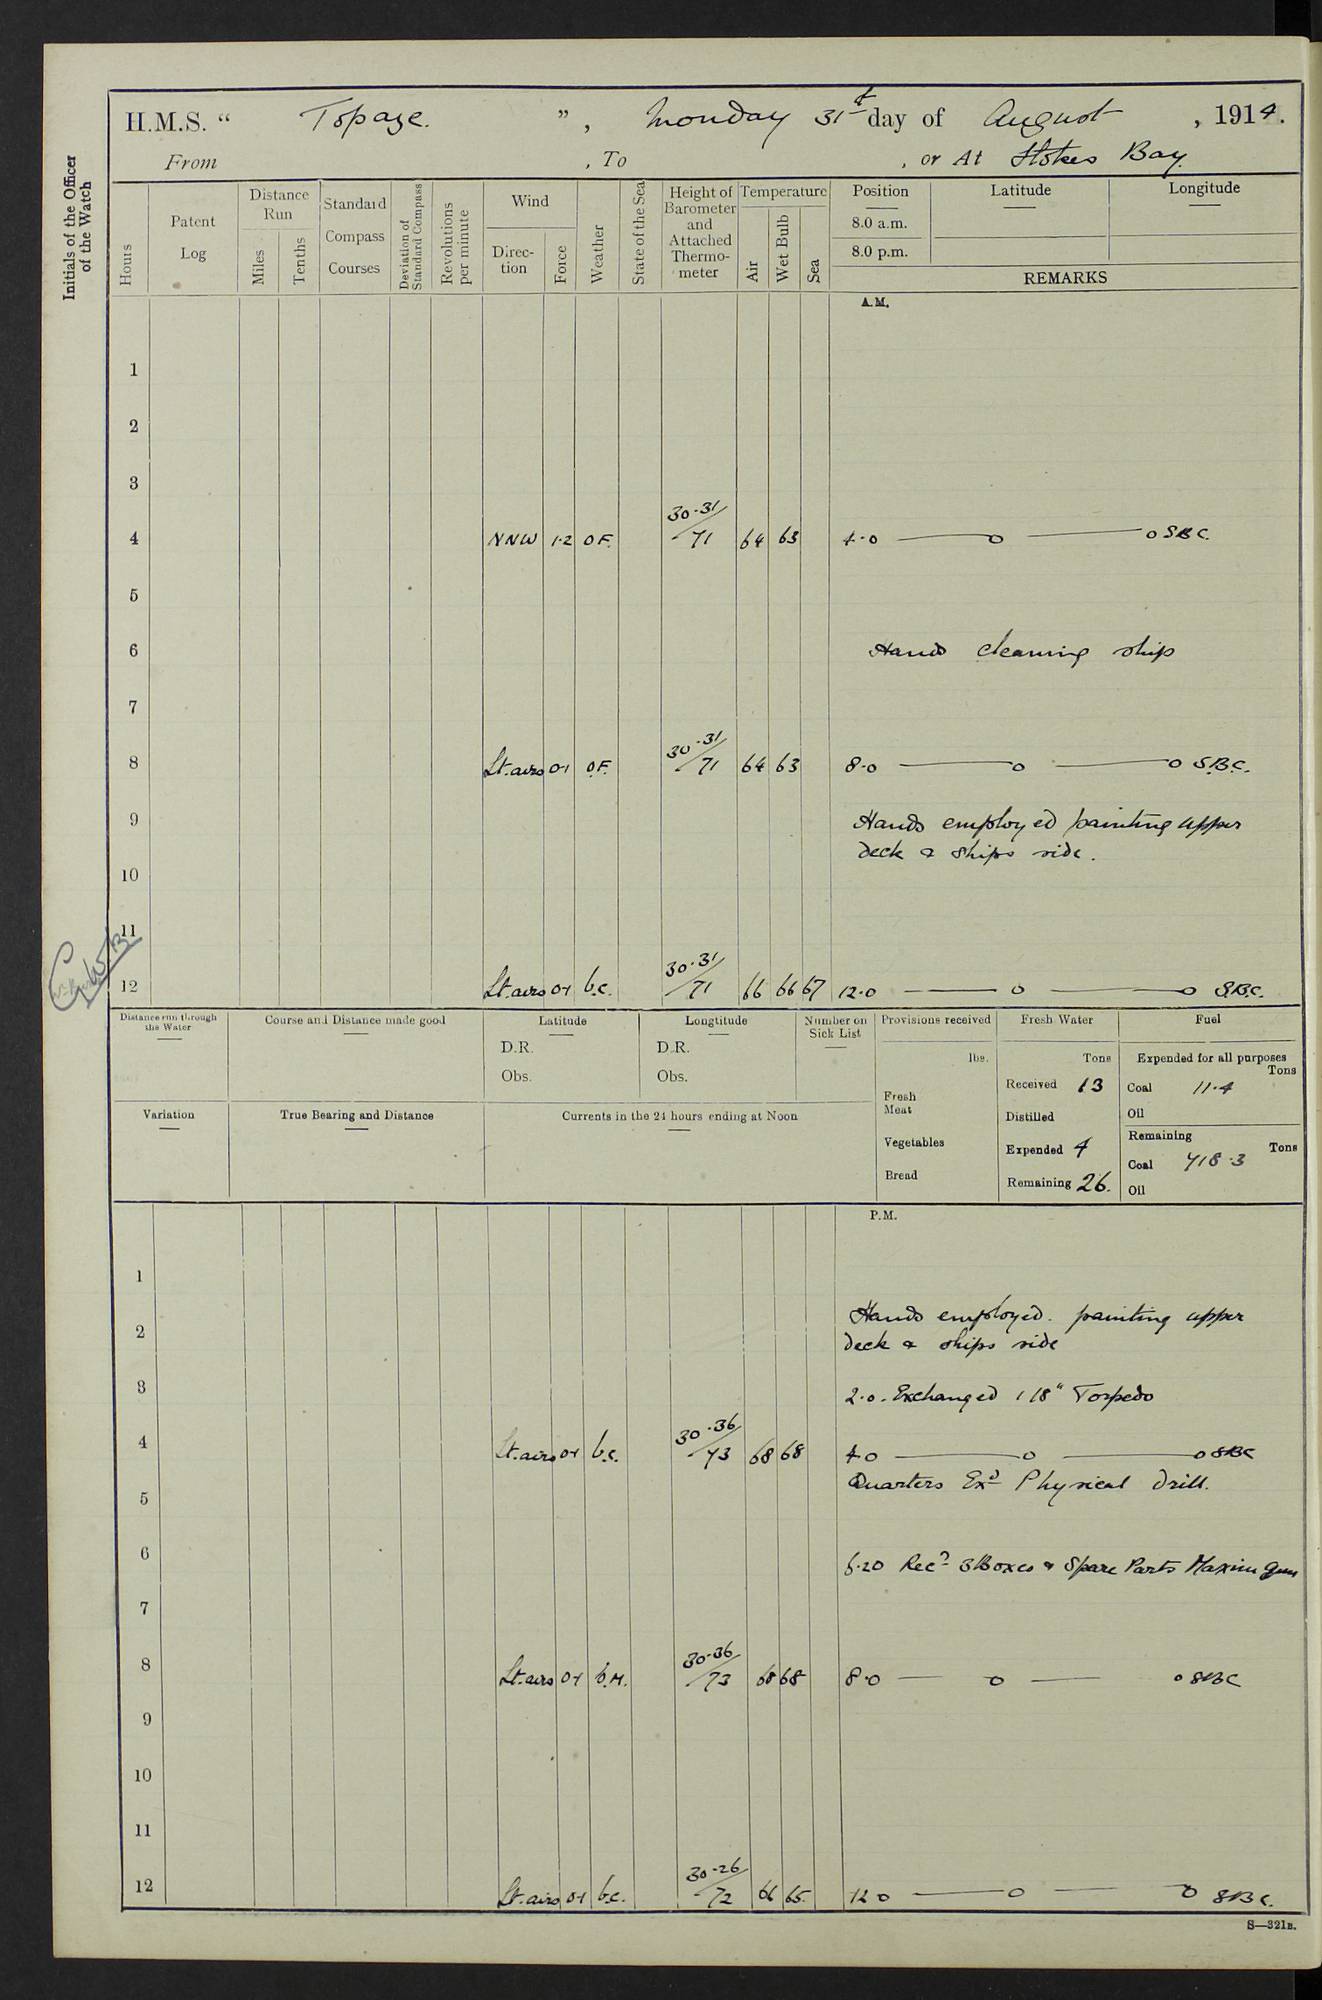 H.M.S. “ Topaze. ”, Monday 31st day of August, 1914.
From , To , or At Stokes Bay.
Initials of the Officer of the Watch
Hours
Patent Log
Distance Run
Miles
Tenths
Standard Compass Courses
Deviation of Standard Compass
Revolutions per minute
Wind
Direction
Force
Weather
State of the Sea
Height of Barometer and Attached Thermometer
Temperature
Air
Wet Bulb
Sea
Position
8.0 a.m.
8.0 p.m.
Latitude
Longitude
REMARKS
A.M.
1
2
3
4 NNW 1·2 O F. 30·31/71 64 63 4·0 —— o —— o SBC.
5
6 Hands cleaning ship
7
8 Lt. airs 0·1 O.F. 30·31/71 64 63 8·0 —— o —— o S.B.C.
9 Hands employed painting upper
deck & ships side.
10
11
12 Lt. airs 0·1 b.c. 30·31/71 66 66 67 12·0 —— o —— o S.B.C.
Distance run through the Water
Course and Distance made good
Latitude
D.R.
Obs.
Longtitude
D.R.
Obs.
Number on Sick List
Provisions received
lbs.
Fresh Meat
Vegetables
Bread
Fresh Water
Tons
Received 13
Distilled
Expended 4
Remaining 26.
Fuel
Expended for all purposes
Tons
Coal 11·4
Oil
Remaining
Tons
Coal 718·3
Oil
Variation
True Bearing and Distance
Currents in the 24 hours ending at Noon
P.M.
1
2 Hands employed. painting upper
deck & ships side
3 2·0. Exchanged 1 18" Torpedo
4 Lt. airs 0·1 b.c. 30·36/73 68 68 4 0 —— o —— o SBC
Quarters Exd Physical Drill.
5
6 6·20 Recd 3 Boxes & Spare Parts Maxim Gun
7
8 Lt. airs 0·1 b.M. 30·36/73 68 68 8·0 —— o —— o SBC
9
10
11
12 Lt. airs 0·1 b.c. 30·26/72 66 65. 12 0 —— o —— o SBC.
S—321B.